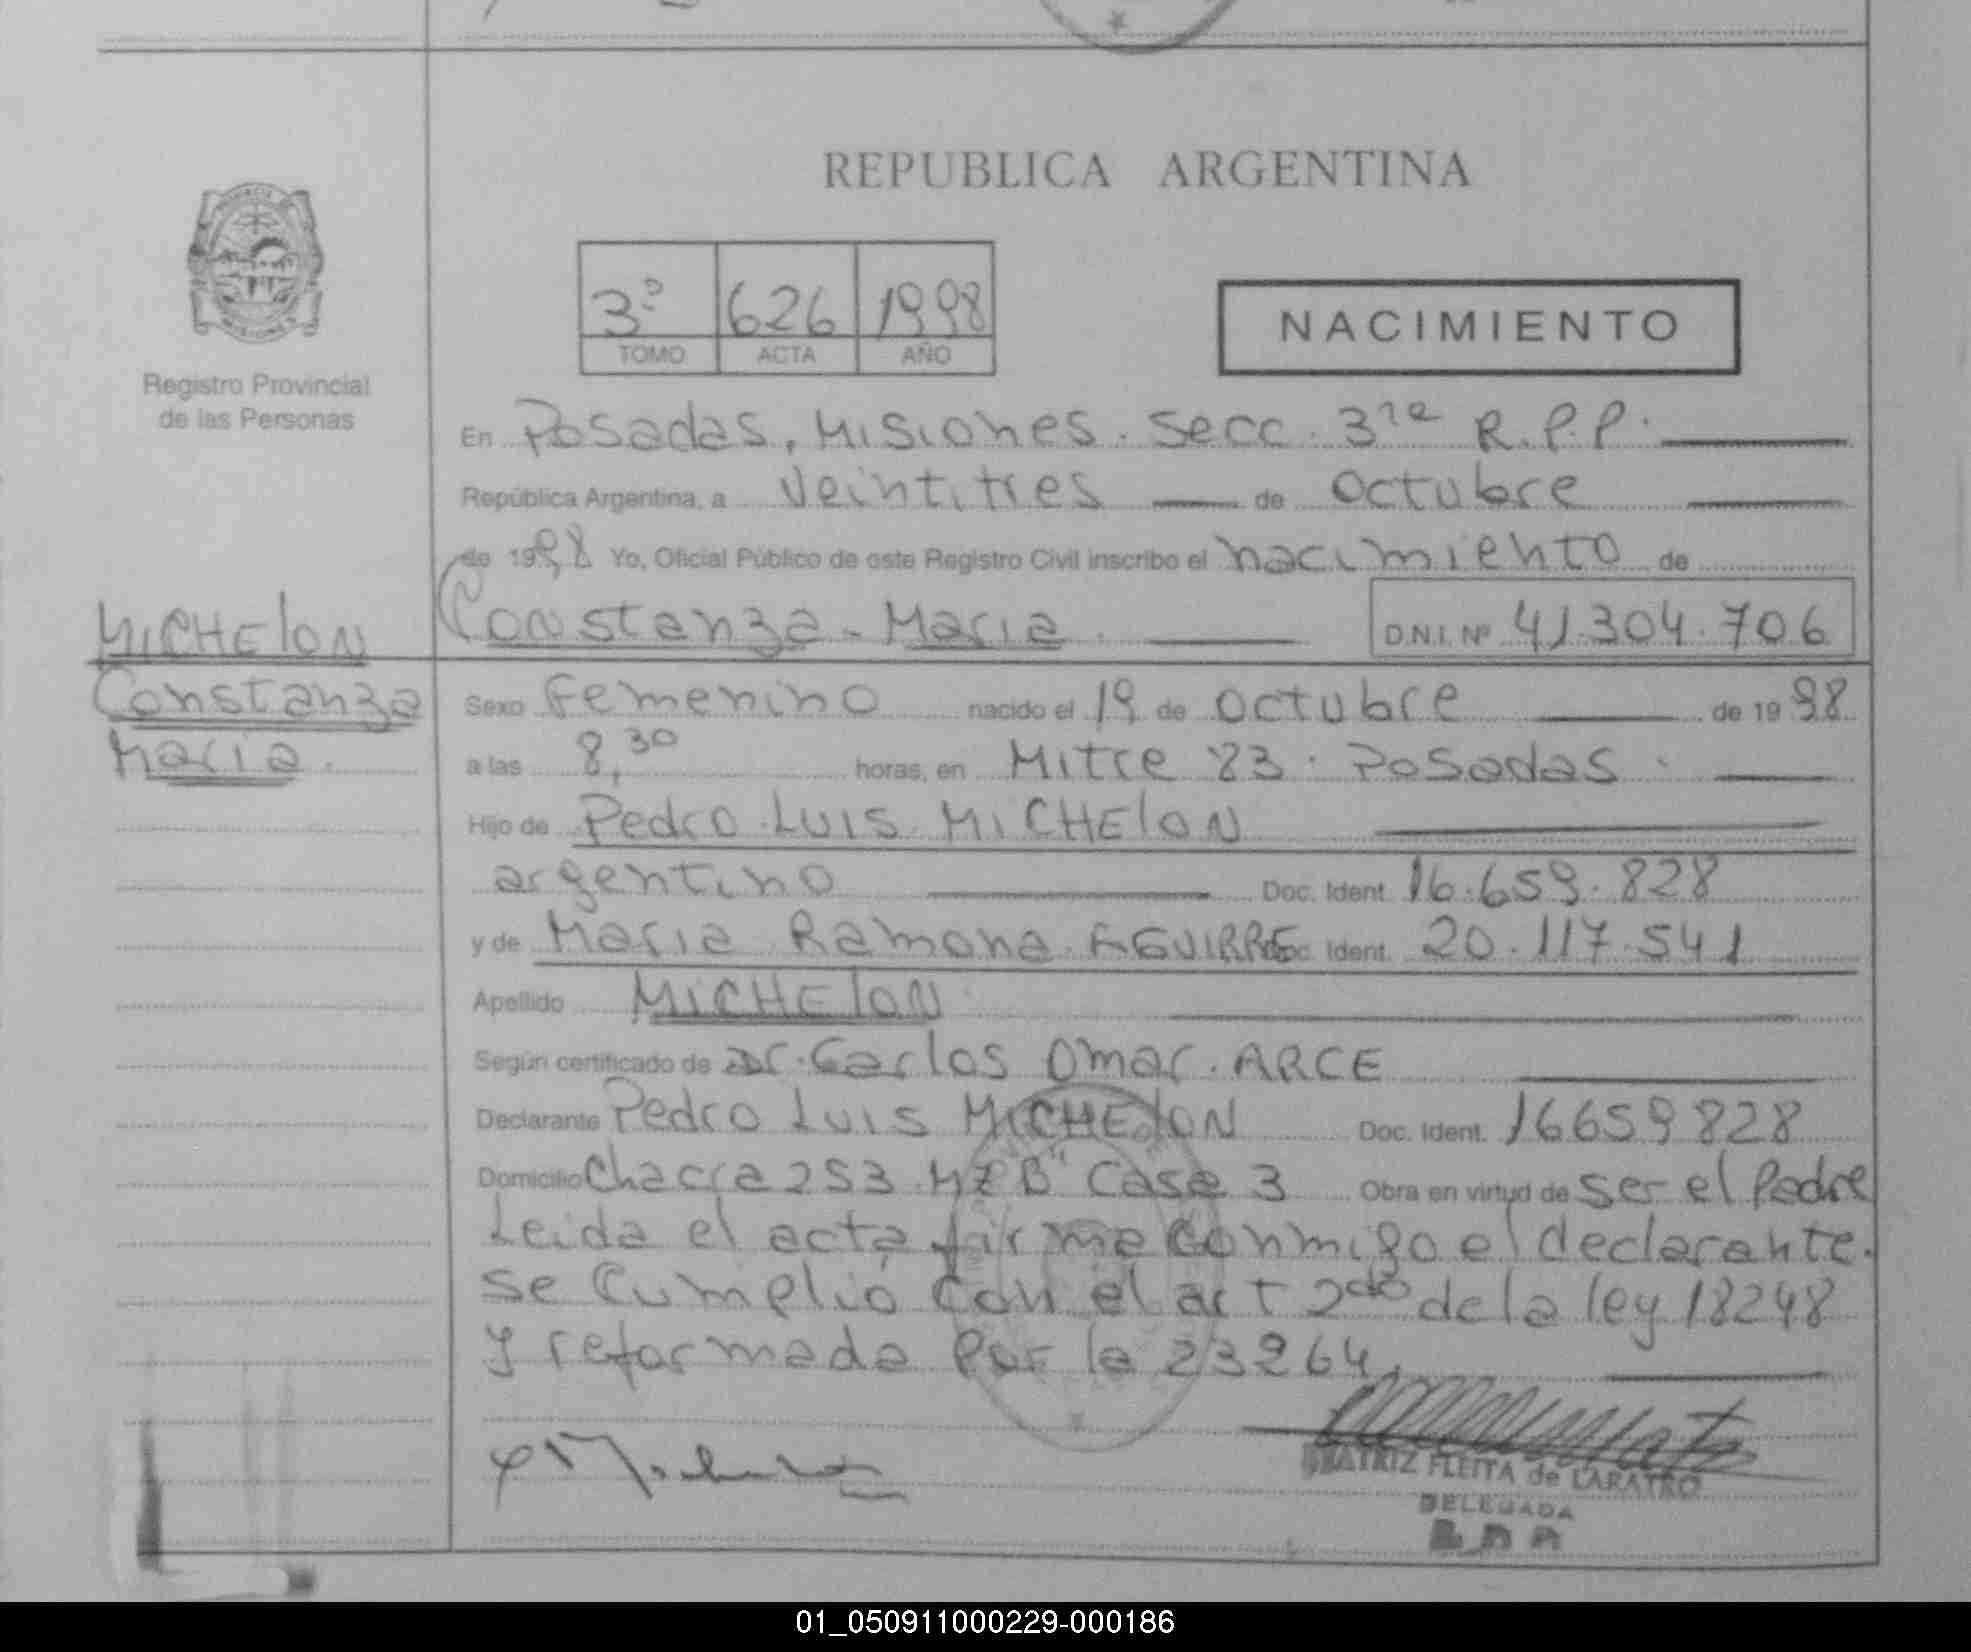 REPUBLICA ARGENTINA
3º 626 1998
TOMO ACTA AÑO
NACIMIENTO
Registro Provincial
de las Personas
En Posadas, Misiones. Secc. 3ra R.P.P.
República Argentina, a veintitres de octubre
de 1998 Yo, Oficial Público de este Registro Civil inscribo el nacimiento de
Constanza María
D.N.I. Nº 41.304.706
MICHElON
Constanza
María
Sexo Femenino nacido el 19 de octubre de 1998
a las 8,30 horas, en Mitre 83. Posadas
Hijo de Pedro Luis MICHElON
argentino Doc. Ident. 16.659.828
y de Maria Ramona AGUIRRE Doc. Ident. 20.117.541
Apellido MICHElON
Según certificado de Dr. Carlos Omar ARCE
Declarante Pedro Luis MICHElON Doc. Ident. 16659828
Domicilio Chacra 253 MZ B" Casa 3 Obra en virtud de ser el Padre
Leida el acta firma conmigo el declarante.
Se cumplió con el art 2do de la ley 18248
y reformada por la 23264,
BEATRIZ FLEITA de LARATRO
DELEGADA
01_050911000229-000186